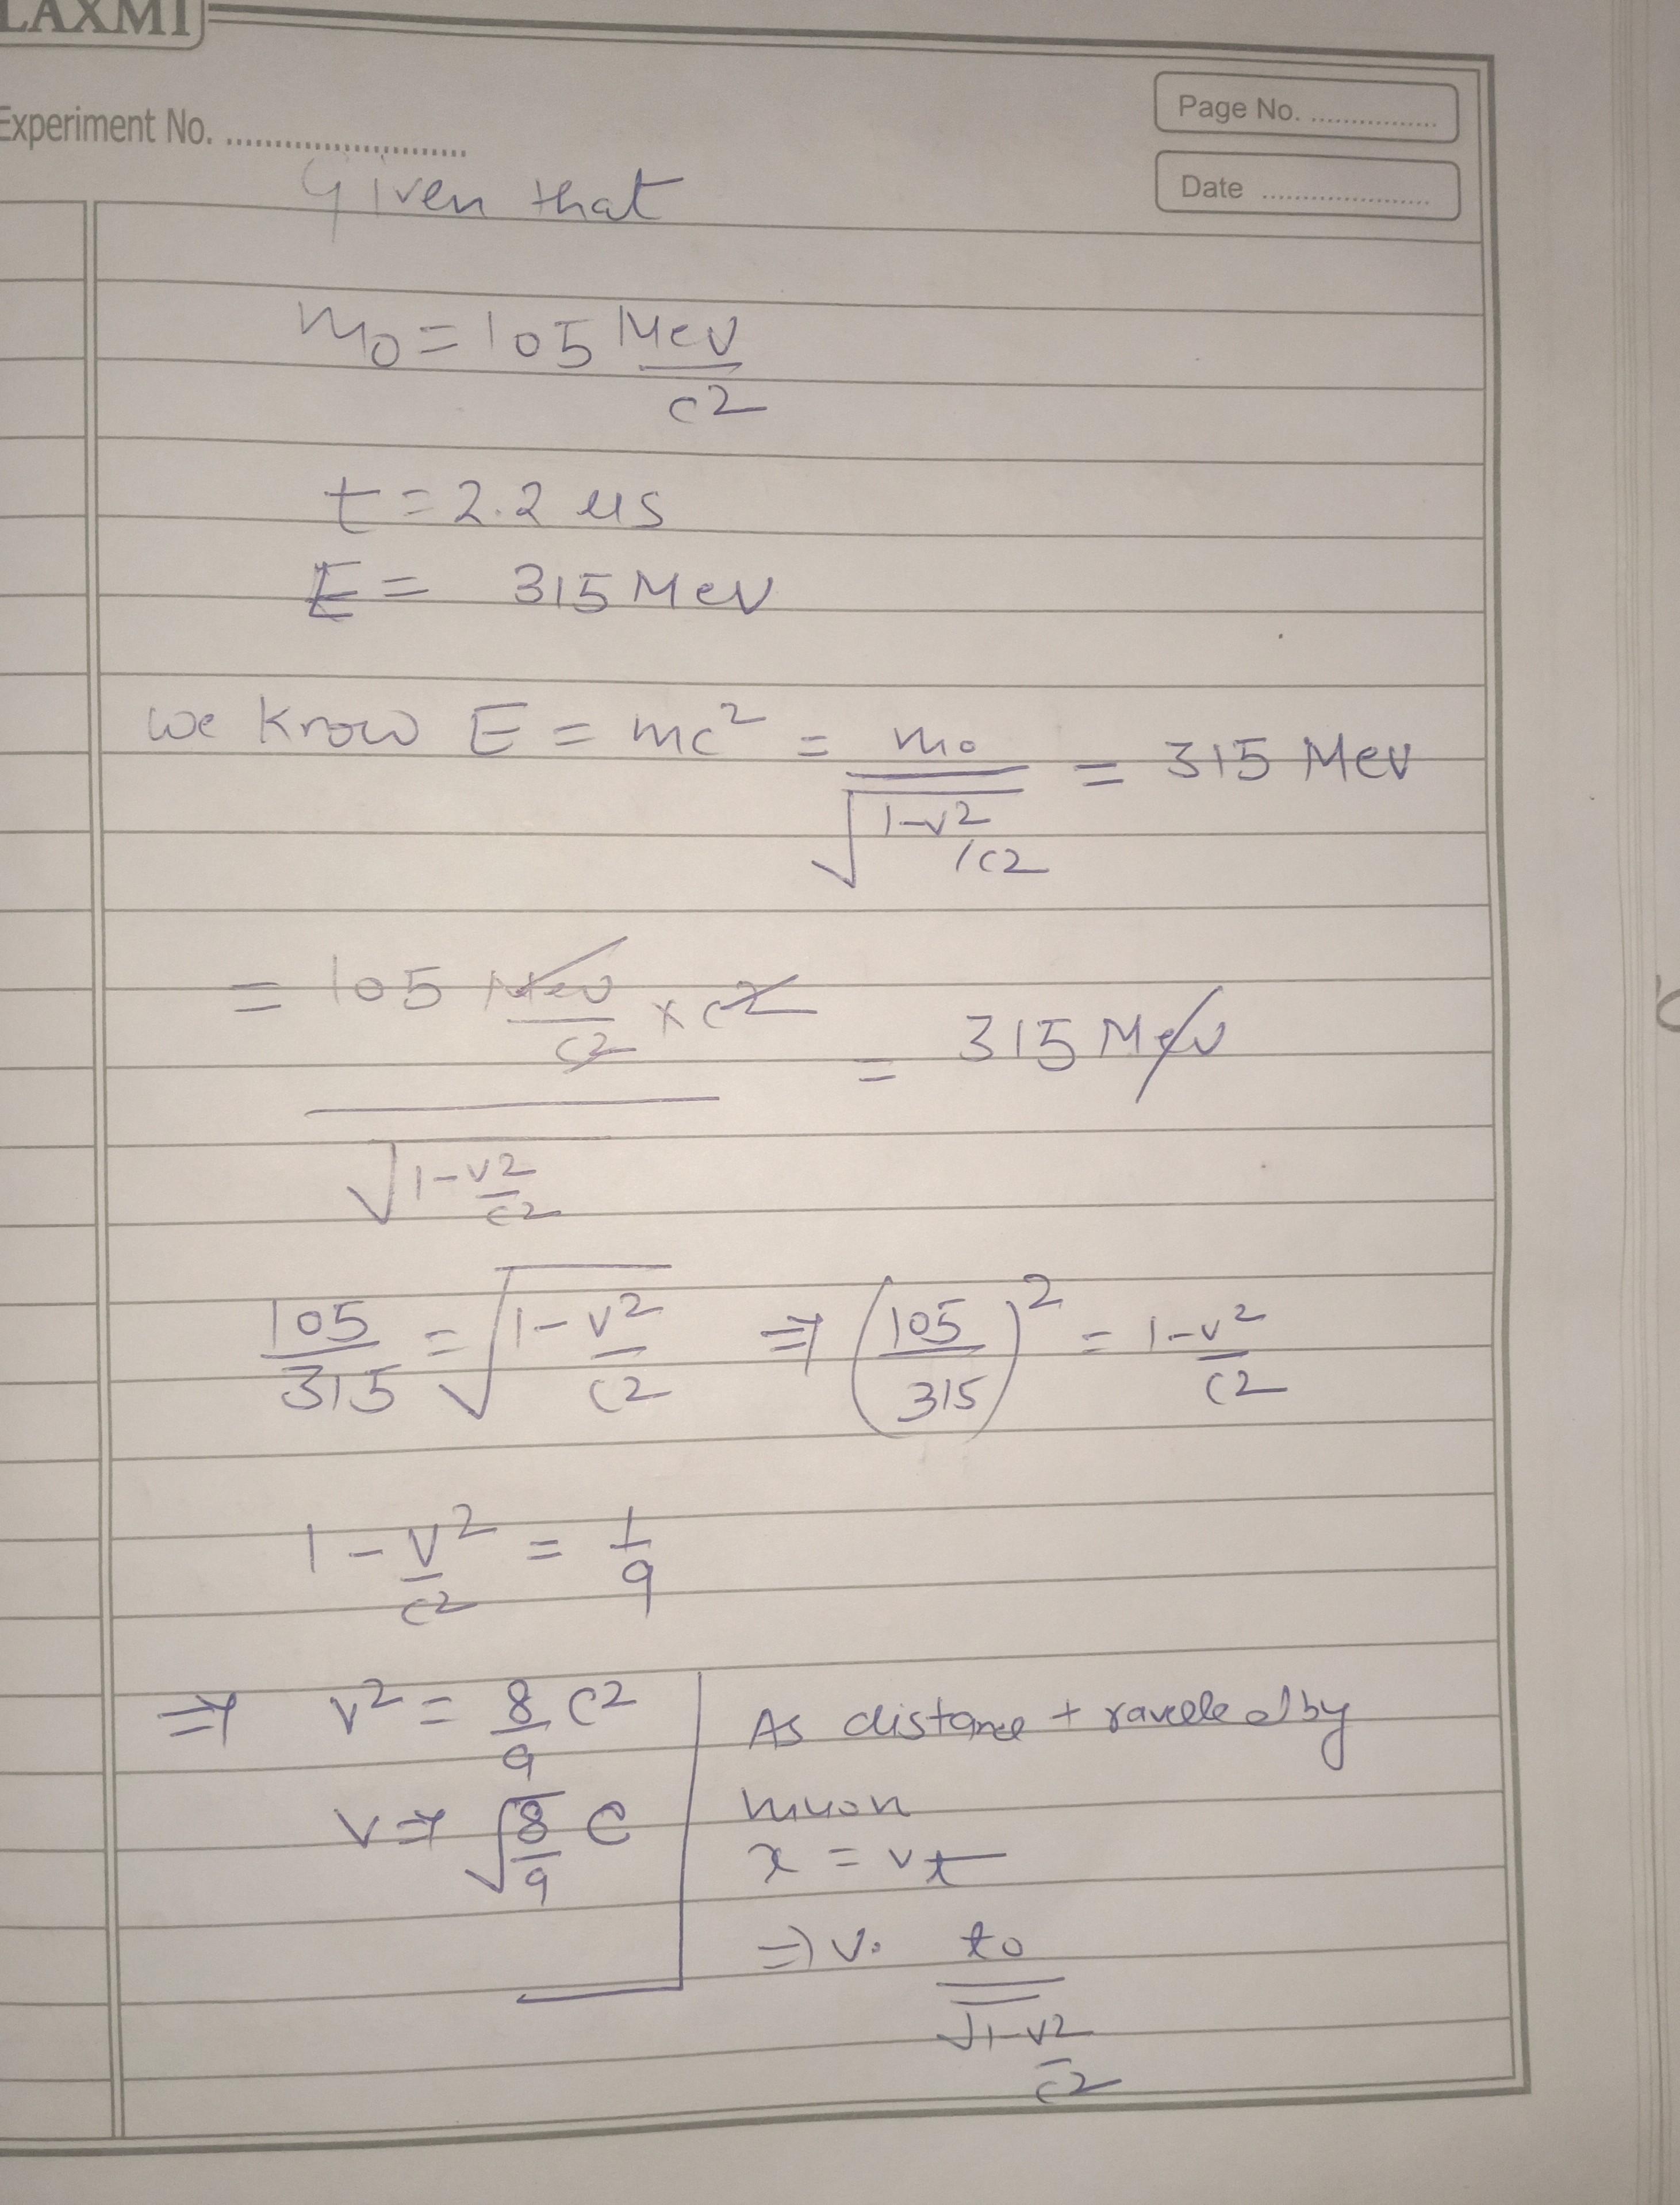 LAXMI
Experiment No. ........................
Page No. ................
Date .....................
Given that
m₀ = 105 Mev/c2
t = 2.2 us
E = 315 Mev
we know E = mc² = m₀/√(1-v2/c2) = 315 Mev
= 105 Mev/c2 x c2 / √(1-v2/c2) = 315 Mev
105/315 = √(1-v2/c2) ⇒ (105/315)² = 1-v²/c2
1 - v²/c2 = 1/9
⇒ v² = 8/9 c2
v ⇒ √(8/9) c
As distance travelled by
muon
x = vt
⇒ v. to/√(1-v2/c2)